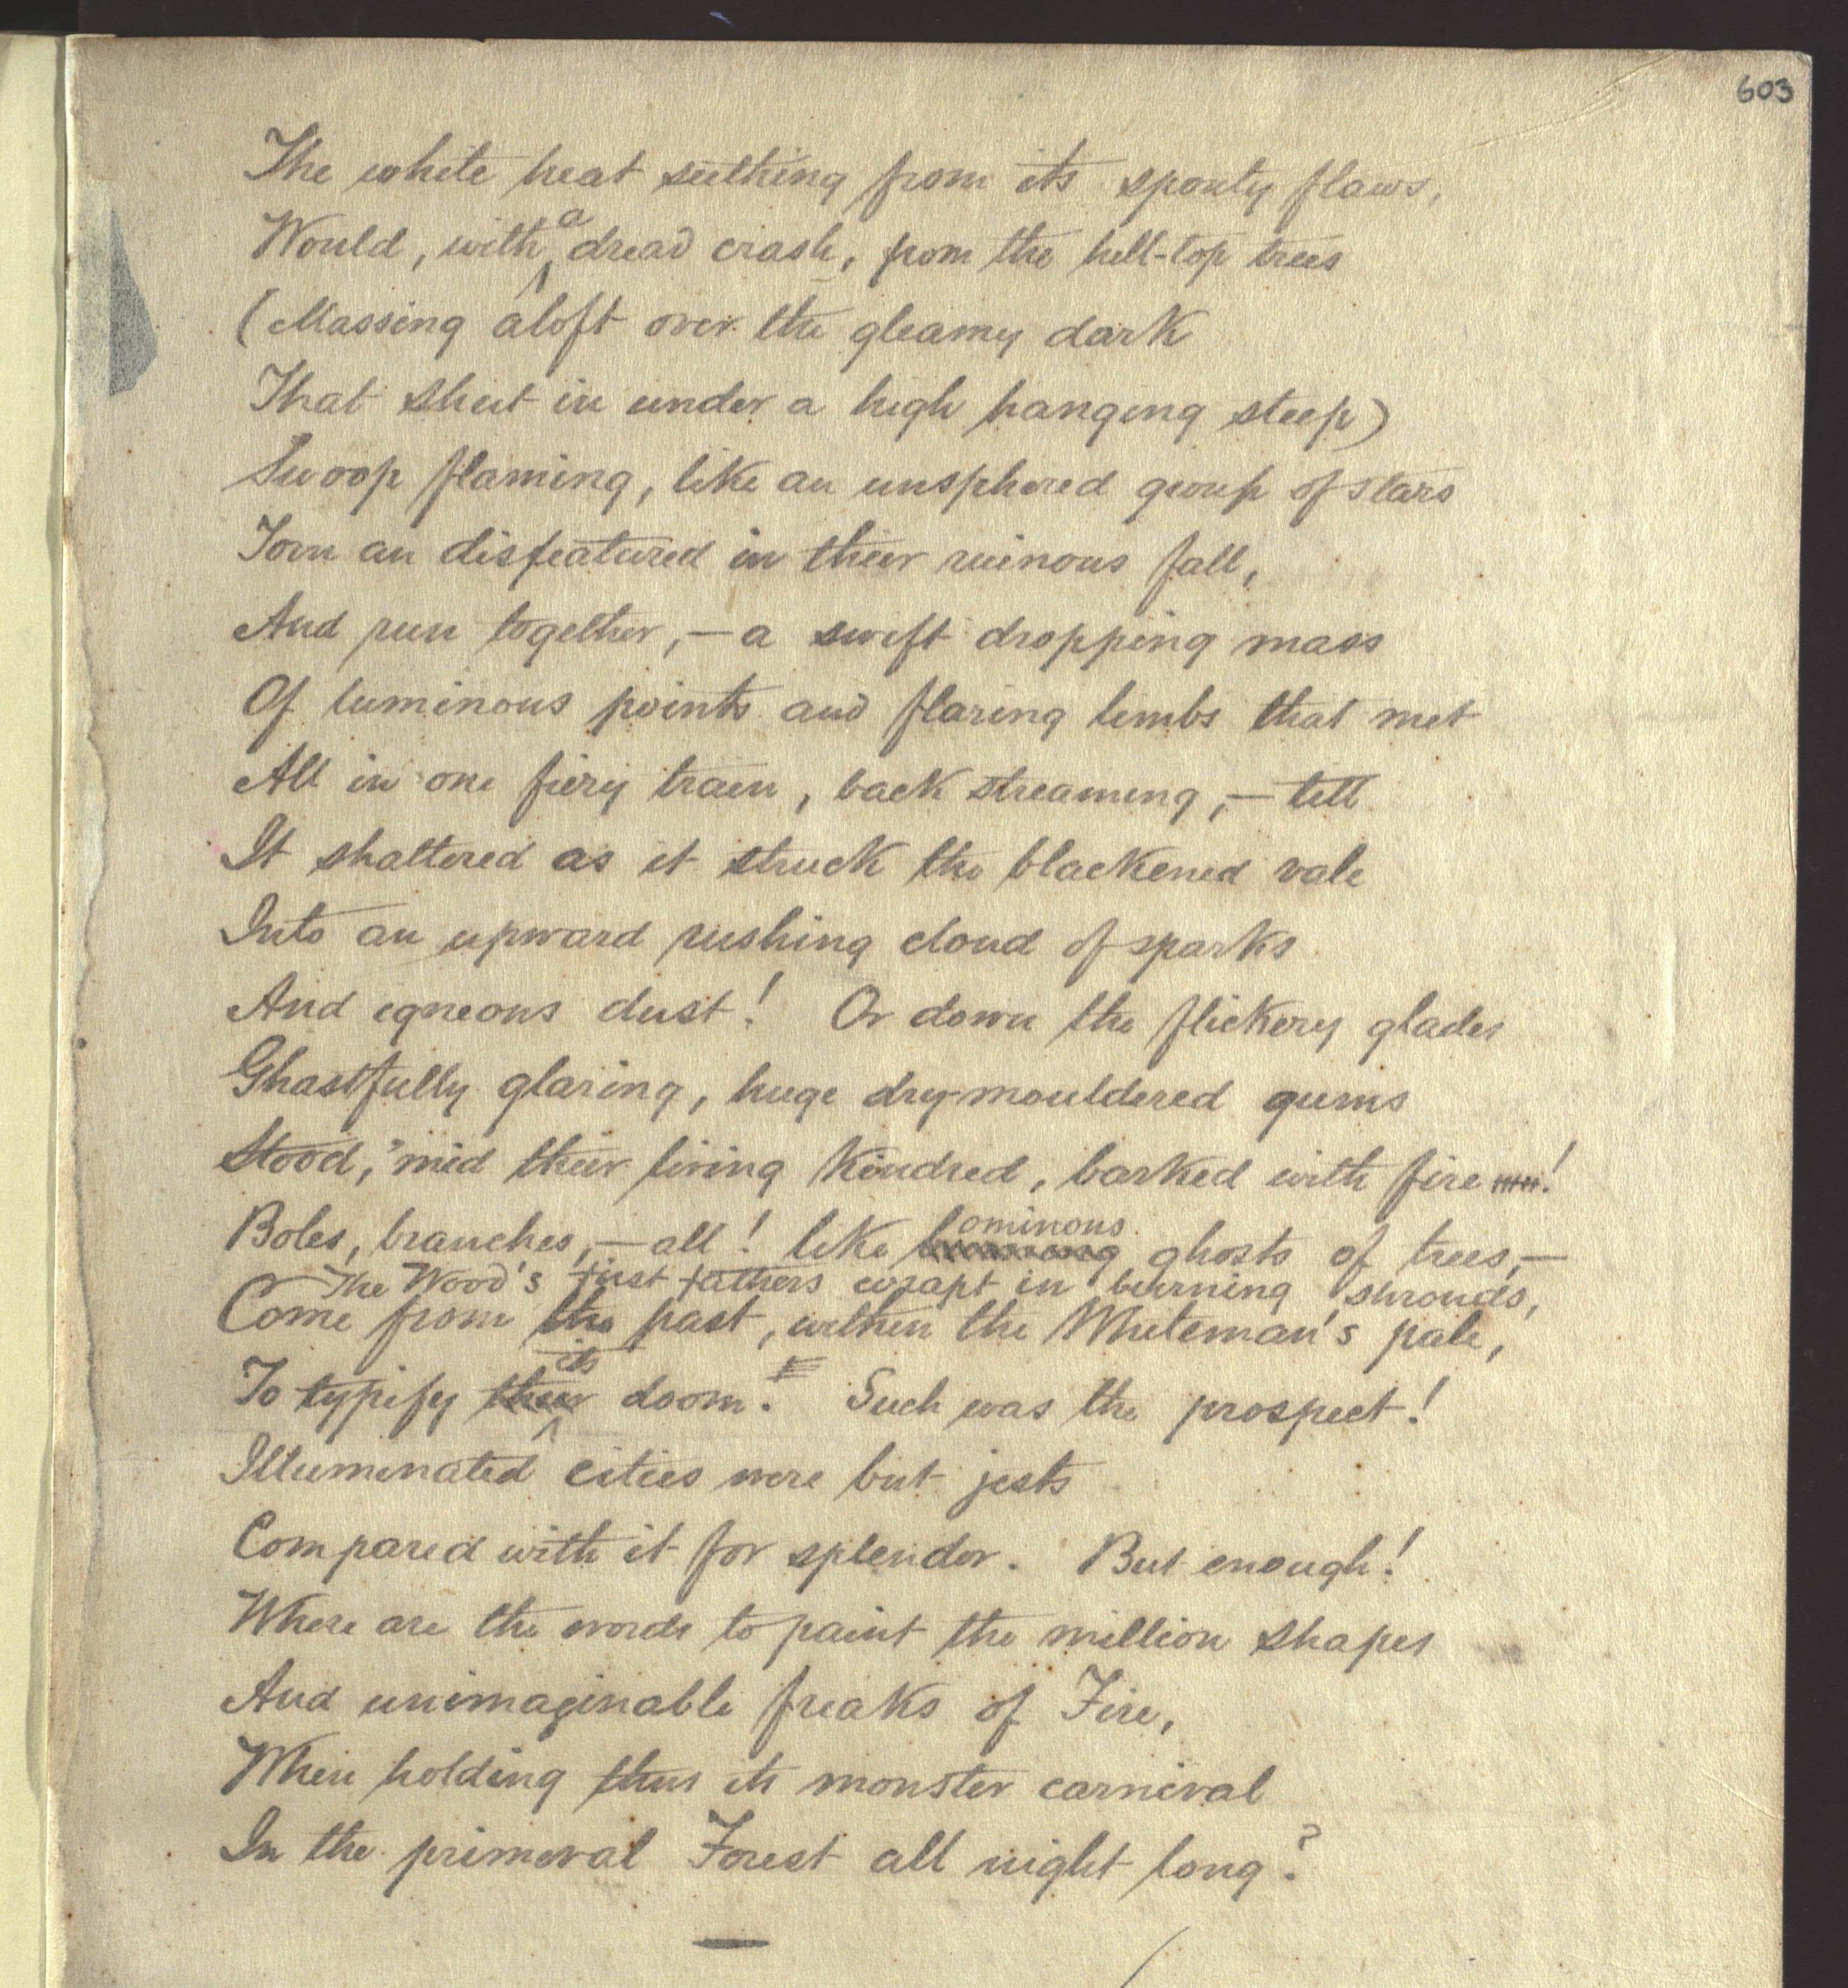 603
The white heat seething from its spouty flaws,
Would, with a dread crash, from the hill-top trees
(Massing aloft over the gleamy dark
That shut in under a high hanging steep)
Swoop flaming, like an unsphered group of stars
Torn an disfeatured in their ruinous fall,
And run together, — a swift dropping mass
Of luminous points and flaring limbs that met
All in one fiery train, back streaming, — till
It shattered as it struck the blackened vale
Into an upward rushing cloud of sparks
And igneous dust! Or down the flickery glades
Ghastfully glaring, huge dry-mouldered gums
Stood, 'mid their living kindred, barked with fire!
Boles, branches, — all! like ominous ghosts of trees, —
The Wood's first fathers wrapt in burning shrouds,
Come from the past, within the Whiteman's pale,
To typify their its doom. Such was the prospect!
Illuminated cities were but jests
Compared with it for splendor. But enough!
Where are the words to paint the million shapes
And unimaginable freaks of Fire,
When holding thus its monster carnival
In the primeval Forest all night long?